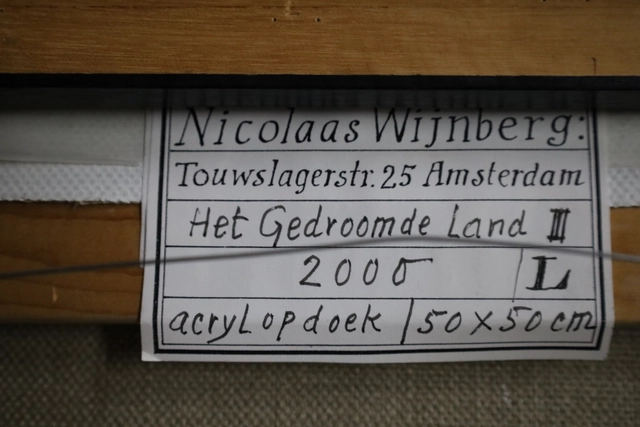 Nicolaas Wijnberg:
Touwslagerstr. 25 Amsterdam
Het Gedroomde Land III
2005 L
acryl op doek 50 x 50 cm